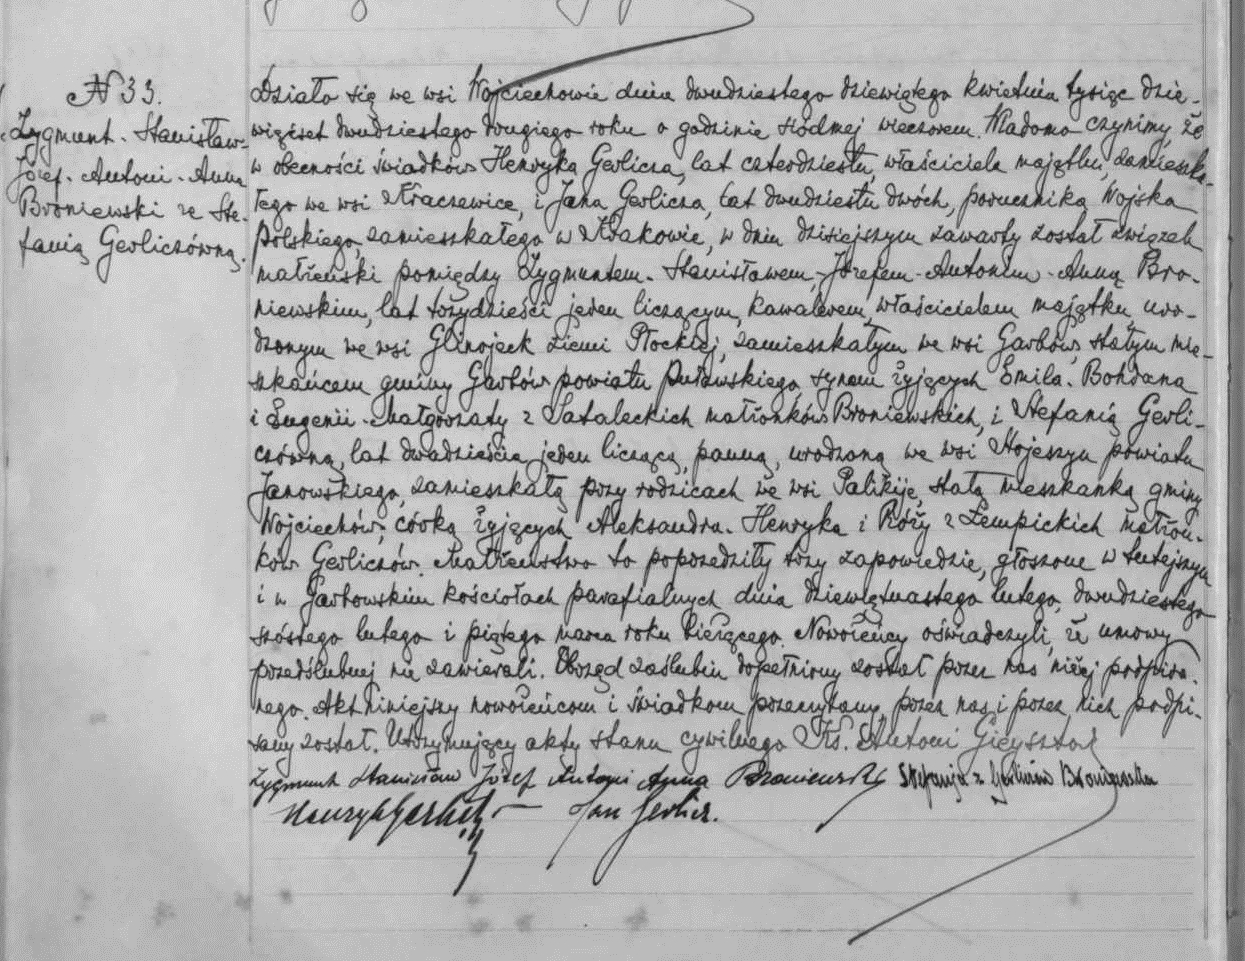 N 33.
Zygmunt-Stanisław-
Józef-Antoni-Anna
Broniewski ze Ste-
fanią Gerliczówną.
Działo się we wsi Wojciechowie dnia dwudziestego dziewiątego kwietnia tysiąc dzie-
więćset dwudziestego drugiego roku o godzinie siódmej wieczorem. Wiadomo czynimy, że
w obecności świadków Henryka Gerlicza, lat czterdziestu, właściciela majątku, zamieszka-
łego we wsi Kraczewice, i Jana Gerlicza, lat dwudziestu dwóch, porucznika Wojska
Polskiego, zamieszkałego w Krakowie, w dniu dzisiejszym zawarty został związek
małżeński pomiędzy Zygmuntem-Stanisławem-Józefem-Antonim-Anną Bro-
niewskim, lat trzydzieści jeden liczącym, kawalerem, właścicielem majątku uro-
dzonym we wsi Glinojeck Ziemi Płockiej, zamieszkałym we wsi Garbów, stałym mie-
szkańcem gminy Garbów powiatu Puławskiego, synem żyjących Emila-Bohdana
i Eugenii-Małgorzaty z Sataleckich małżonków Broniewskich, i Stefanią Gerli-
czówną, lat dwadzieścia jeden liczącą, panną, urodzoną we wsi Stojeszyn powiatu
Janowskiego, zamieszkałą przy rodzicach we wsi Palikije, stałą mieszkanką gminy
Wojciechów, córką żyjących Aleksandra-Henryka i Róży z Łempickich małżon-
ków Gerliczów. Małżeństwo to poprzedziły trzy zapowiedzie, głoszone w tutejszym
i w Garbowskim kościołach parafialnych dnia dziewiętnastego lutego, dwudziestego
szóstego lutego i piątego marca roku bieżącego. Nowożeńcy oświadczyli, że umowy
przedślubnej nie zawierali. Obrzęd zaślubin dopełniony został przez nas niżej podpisa-
nego. Akt niniejszy nowożeńcom i świadkom przeczytany, przez nas i przez nich podpi-
sany został. Utrzymujący akty stanu cywilnego Ks. Antoni Gieysztor
Zygmunt Stanisław Józef Antoni Anna Broniewski Stefanja z Gerliczów Broniewska
Henryk Gerlicz Jan Gerlicz.